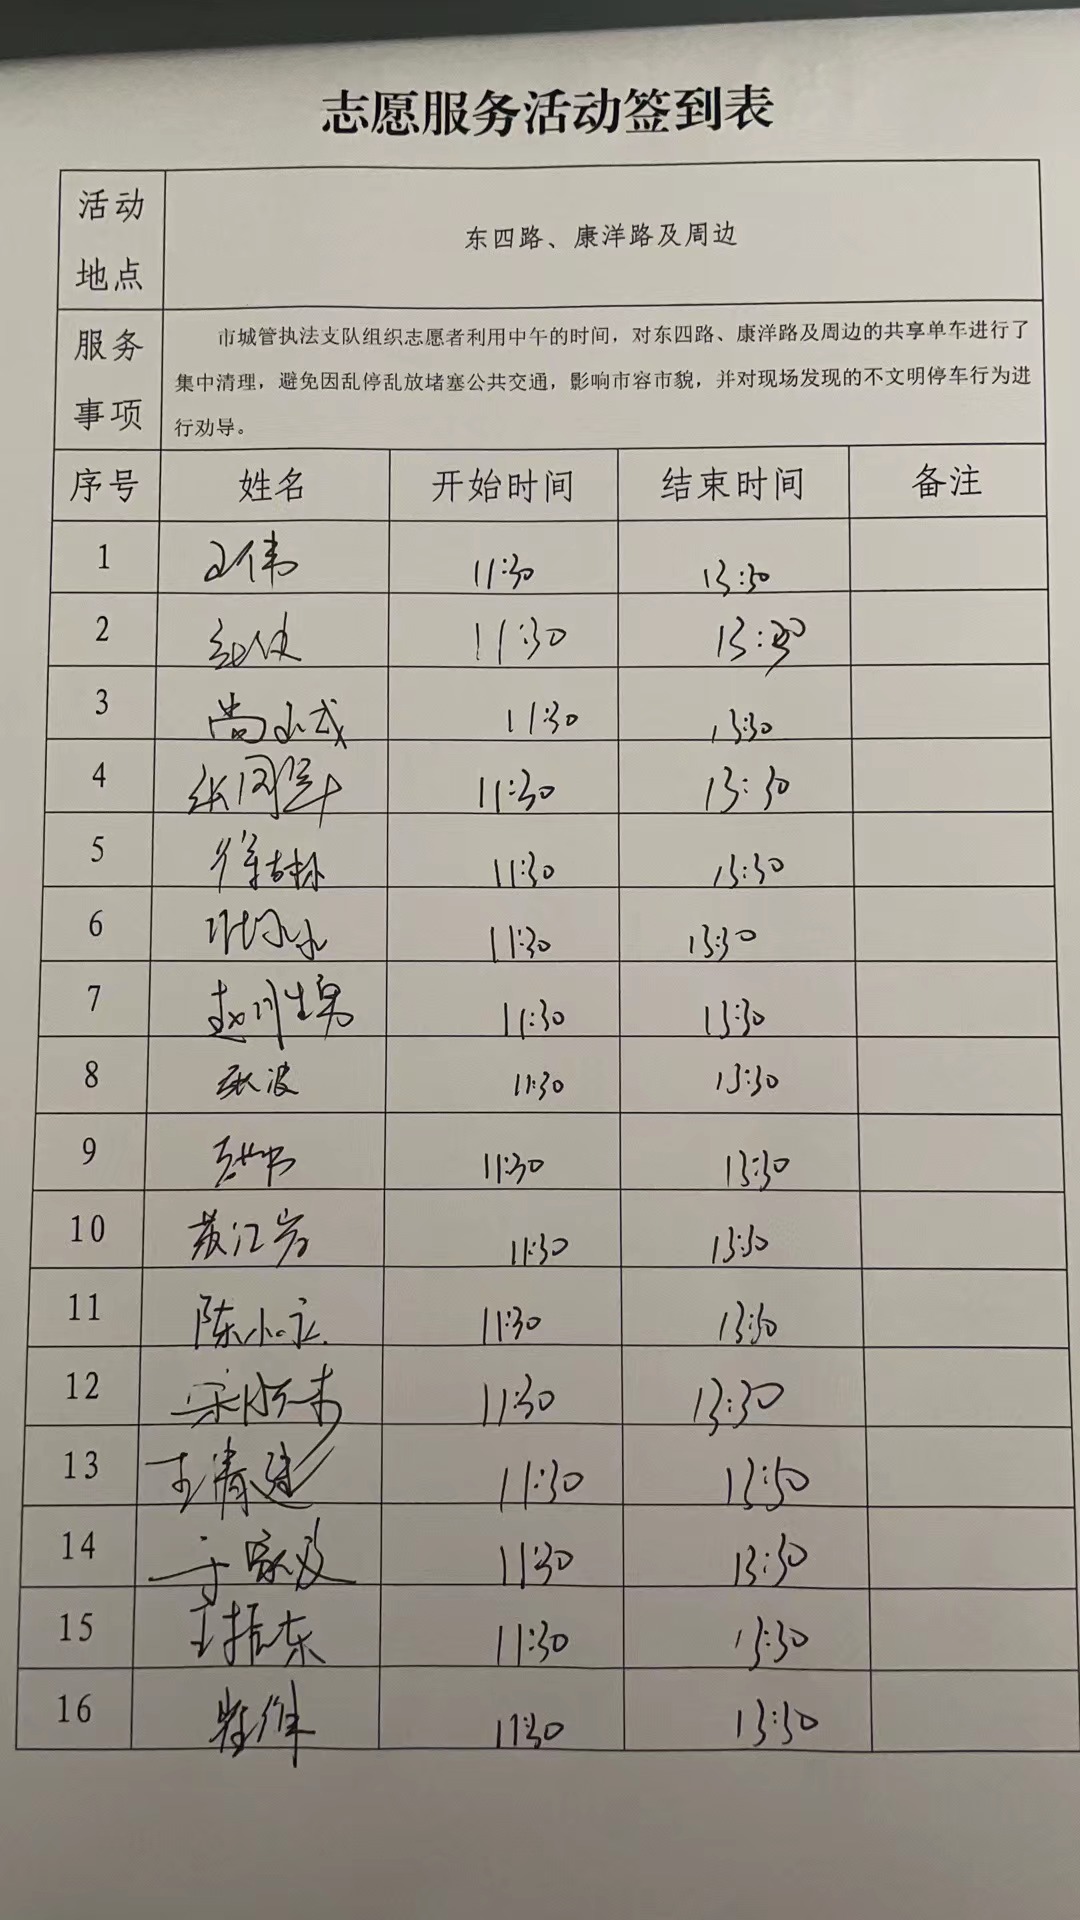 志愿服务活动签到表
活动地点 东四路、康洋路及周边
服务事项 市城管执法支队组织志愿者利用中午的时间，对东四路、康洋路及周边的共享单车进行了
集中清理，避免因乱停乱放堵塞公共交通，影响市容市貌，并对现场发现的不文明停车行为进
行劝导。
序号 姓名 开始时间 结束时间 备注
1 王伟 11:30 13:30
2 11:30 13:30
3 11:30 13:30
4 11:30 13:30
5 11:30 13:30
6 11:30 13:30
7 11:30 13:30
8 张波 11:30 13:30
9 11:30 13:30
10 11:30 13:30
11 11:30 13:30
12 11:30 13:30
13 王清建 11:30 13:30
14 11:30 13:30
15 王振东 11:30 13:30
16 11:30 13:30